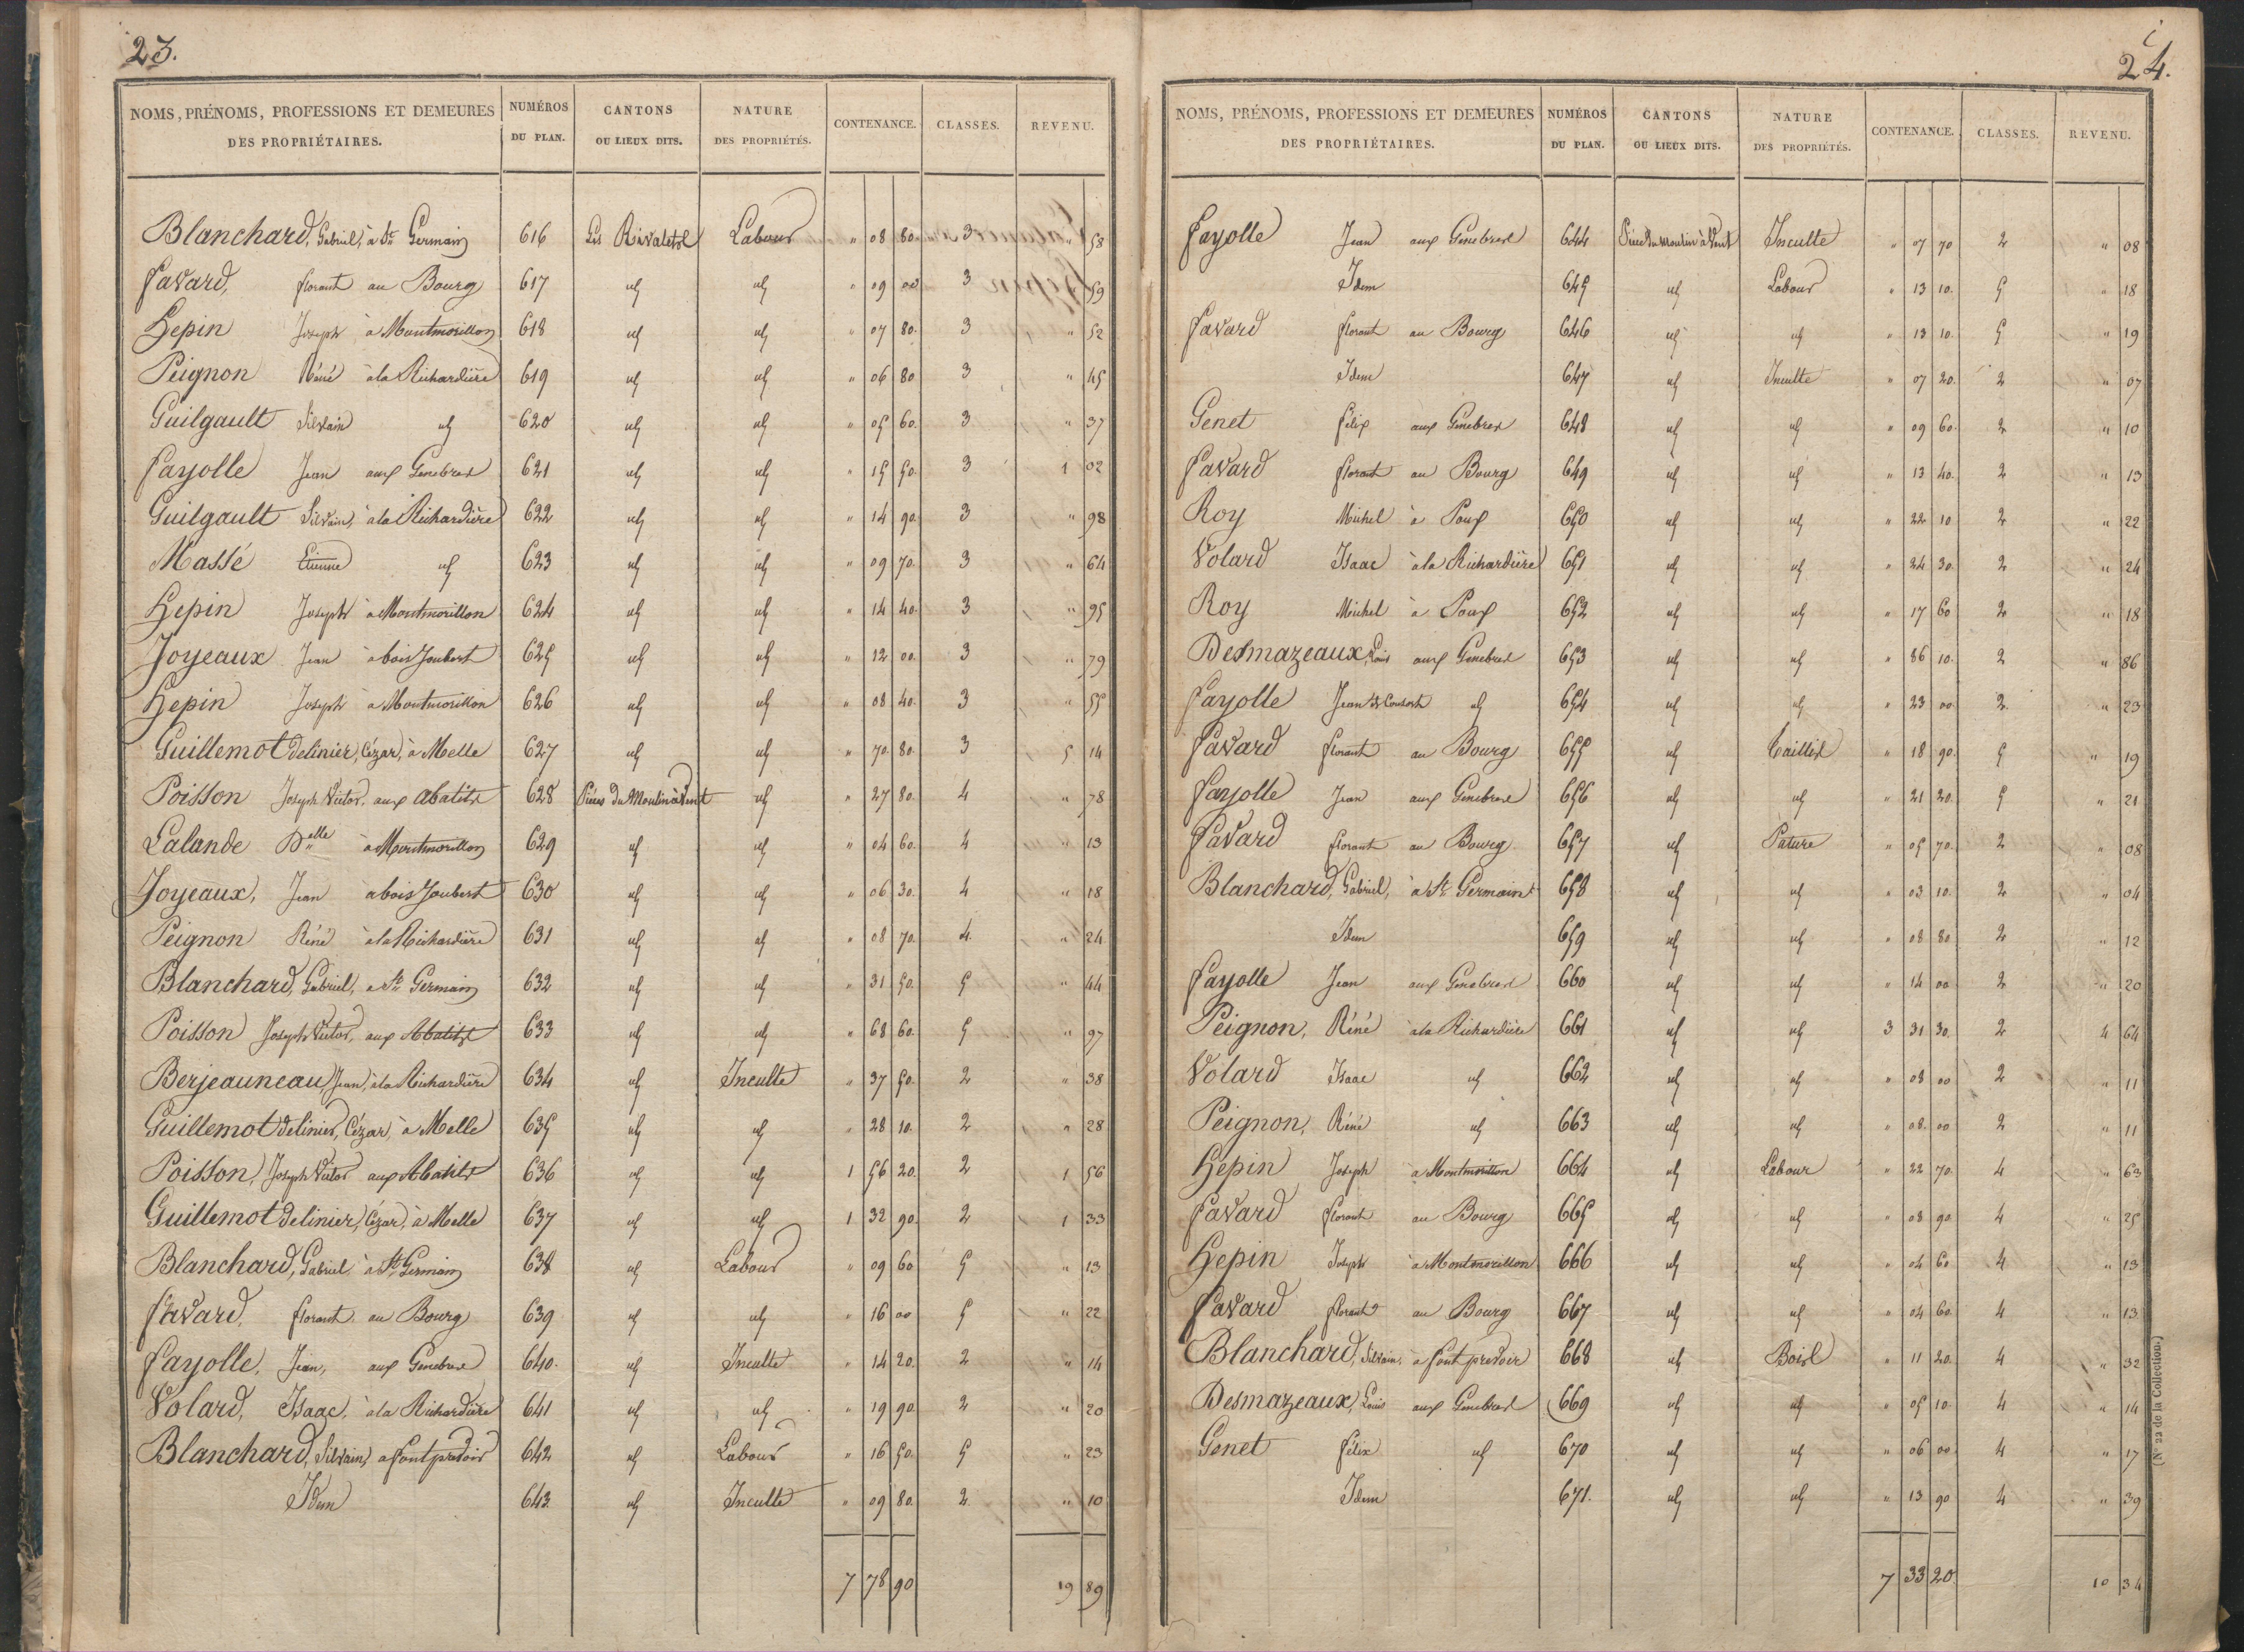 23.
NOMS, PRÉNOMS, PROFESSIONS ET DEMEURES DES PROPRIÉTAIRES. NUMÉROS DU PLAN. CANTONS OU LIEUX DITS. NATURE DES PROPRIÉTÉS. CONTENANCE. CLASSES. REVENU.
Blanchard, Gabriel, à St Germain 616 Les Rivalets Labour " 08 80 3 " 58
favard, florant au Bourg 617 id id " 09 00 3 " 59
Hepin Joseph à Montmorillon 618 id id " 07 80 3 " 52
Peignon Réné à la Richardière 619 id id " 06 80 3 " 45
Guilgault Silvain id 620 id id " 05 60 3 " 37
fayolle Jean aux Genebres 621 id id " 15 50 3 1 02
Guilgault Silvain, à la Richardière 622 id id " 14 90 3 " 98
Massé Etienne id 623 id id " 09 70 3 " 64
Hepin Joseph à Montmorillon 624 id id " 14 40 3 " 95
Joyeaux Jean à bois Joubert 625 id id " 12 00 3 " 79
Hepin Joseph à Montmorillon 626 id id " 08 40 3 " 55
Guillemot delinier, Cézar, à Melle 627 id id " 70 80 3 5 14
Poisson Joseph Victor, aux Abatits 628 Pièces du Moulin à Vent id " 27 80 4 " 78
Lalande Delle à Montmorillon 629 id id " 04 60 4 " 13
Joyeaux, Jean a bois Joubert 630 id id " 06 30 4 " 18
Peignon Réné à la Richardière 631 id id " 08 70 4 " 24
Blanchard, Gabriel, a St Germain 632 id id " 31 50 5 " 44
Poisson Joseph Victor, aux Abatits 633 id id " 68 60 5 " 97
Berjeauneau, Jean, à la Richardière 634 id Inculte " 37 50 2 " 38
Guillemot delinier, Cézar, à Melle 635 id id " 28 10 2 " 28
Poisson, Joseph Victor aux Abatits 636 id id 1 56 20 2 1 56
Guillemot delinier, Cézar, à Melle 637 id id 1 32 90 2 1 33
Blanchard, Gabriel, à St Germain 638 id Labour " 09 60 5 " 13
favard, florant au Bourg 639 id id " 16 00 5 " 22
fayolle, Jean, aux Genebres 640 id Inculte " 14 20 2 " 14
Volard, Isaac, à la Richardière 641 id id " 19 90 2 " 20
Blanchard, Silvain, a fontprevoir 642 id Labour " 16 50 5 " 23
Idem 643 id Inculte " 09 80 2 " 10
7 78 90 19 89
24.
NOMS, PRÉNOMS, PROFESSIONS ET DEMEURES DES PROPRIÉTAIRES. NUMÉROS DU PLAN. CANTONS OU LIEUX DITS. NATURE DES PROPRIÉTÉS. CONTENANCE. CLASSES. REVENU.
fayolle Jean aux Genebres 644 Pièce du Moulin à Vent Inculte " 07 70 2 " 08
Idem 645 id Labour " 13 10 5 " 18
favard florant au Bourg 646 id id " 13 10 5 " 19
Idem 647 id Inculte " 07 20 2 " 07
Genet félix aux Genebres 648 id id " 09 60 2 " 10
favard florant au Bourg 649 id id " 13 40 2 " 13
Roy Michel à Poux 650 id id " 22 10 2 " 22
Volard Isaac à la Richardière 651 id id " 24 30 2 " 24
Roy Michel à Poux 652 id id " 17 60 2 " 18
Desmazeaux, Louis aux Genebres 653 id id " 86 10 2 " 86
fayolle Jean & Consorts id 654 id id " 23 00 2 " 23
favard florant au Bourg 655 id Taillis " 18 90 5 " 19
fayolle Jean aux Genebres 656 id id " 21 20 5 " 21
favard florant au Bourg 657 id Pature " 05 70 2 " 08
Blanchard, Gabriel, à St Germain 658 id id " 03 10 2 " 04
Idem 659 id id " 08 80 2 " 12
fayolle Jean aux Genebres 660 id id " 14 00 2 " 20
Peignon, Réné à la Richardière 661 id id 3 31 30 2 4 64
Volard Isaac id 662 id id " 08 00 2 " 11
Peignon, Réné id 663 id id " 08 00 2 " 11
Hepin Joseph à Montmorillon 664 id Labour " 22 70 4 " 63
favard florant au Bourg 665 id id " 08 90 4 " 25
Hepin Joseph à Montmorillon 666 id id " 04 60 4 " 13
favard florant au Bourg 667 id id " 04 60 4 " 13
Blanchard, Silvain, a fontprevoir 668 id Bois " 11 20 4 " 32
Desmazeaux, Louis aux Genebres 669 id id " 05 10 4 " 14
Genet félix id 670 id id " 06 00 4 " 17
Idem 671 id id " 13 90 4 " 39
7 33 20 10 34
(N° 22 de la Collection.)